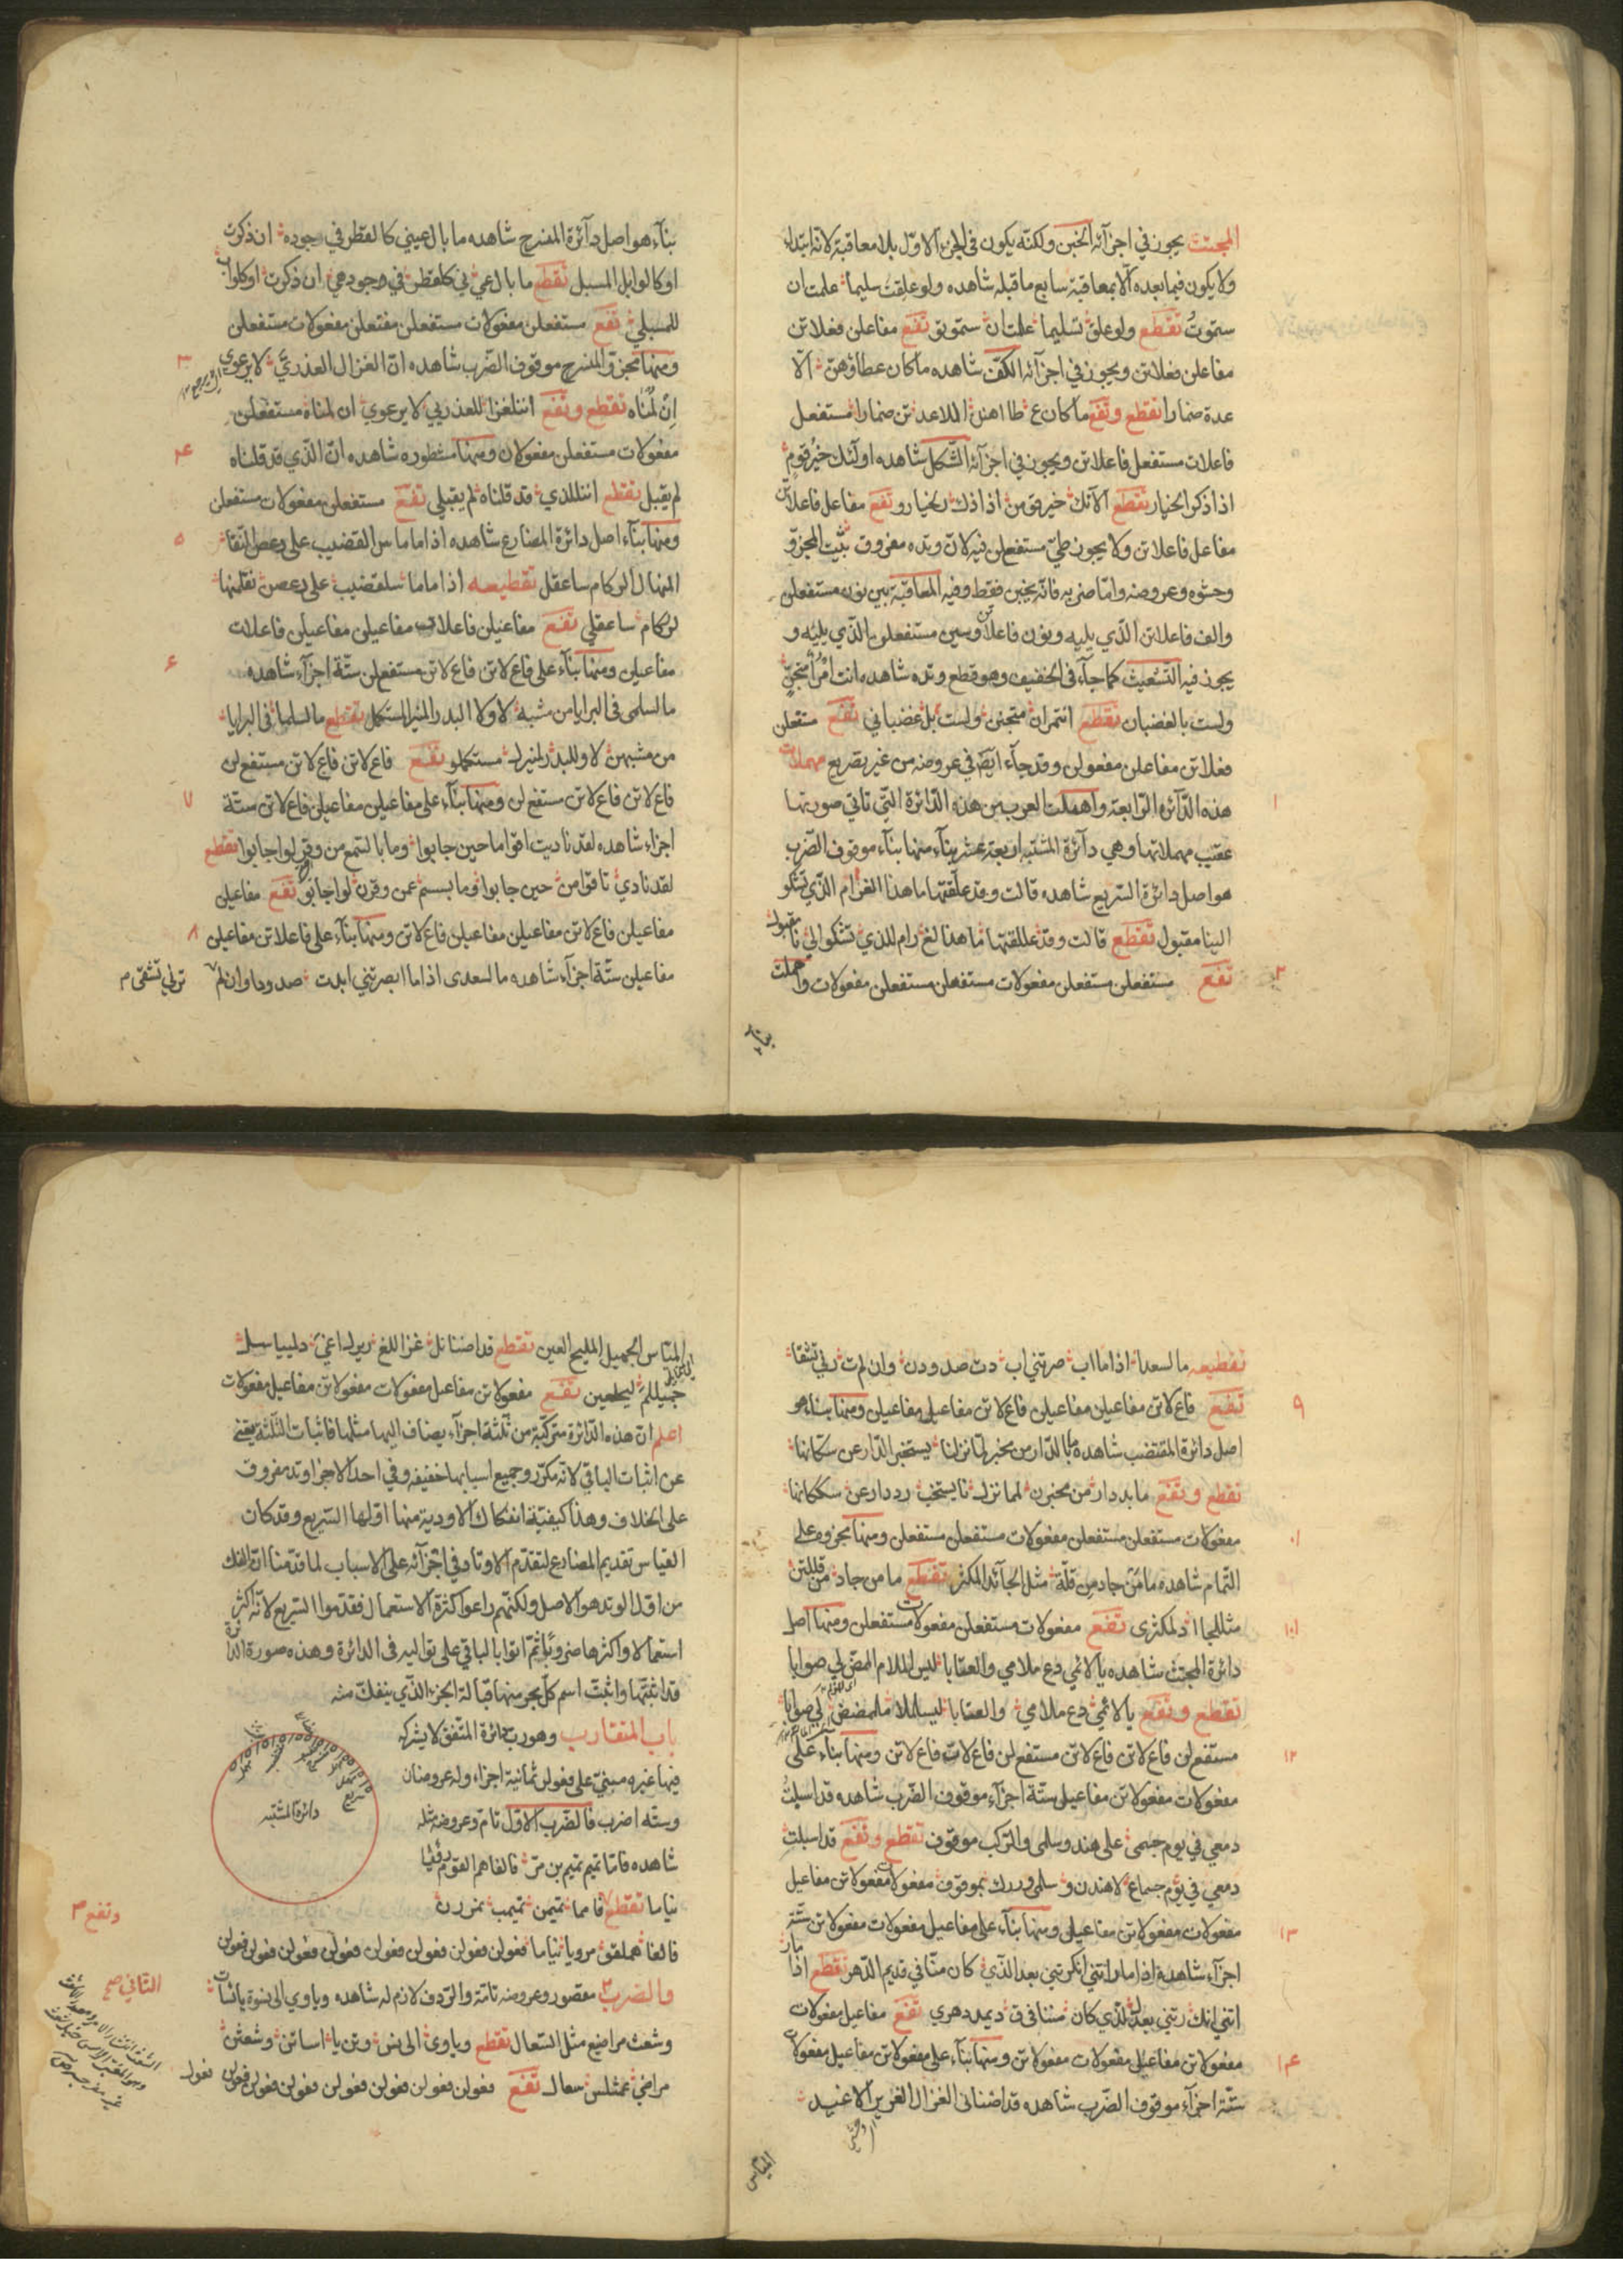 المجتث يجوز في اجزآئه الخبن ولكنه يكون في الجزء الاوّل بلا معاقبة لانه ابتداء
ولا يكون فيما بعده الا بمعاقبة سابع ما قبله شاهده ولو علقت سليما علمت ان
ستموتُ تقطع ولو علق تسليما علمتان ستموتو تفع مفاعلن فعلاتن
مفاعلن فعلاتن ويجوز في اجزآئه الكف شاهده ما كان عطاؤهنّ الّا
عدة ضمارا تقطع وتفع ما كان ع طا اهنن الللاعد تن ضمارا مستفعل
فاعلات مستفعل فاعلاتن ويجوز في اجزآئه الشكل شاهده اولئك خيرُ قومٍ
اذا ذكر الخيار تقطع الآئك خير قومن اذا ذك رلخيارو تفع مفاعل فاعلاتن
مفاعل فاعلاتن ولا يجوز طيّ مستفعلن فيه لانّ وتده مفروق بيت المجزوّ
وحشوه وعروضه وامّا ضربه فانّه يخبن فقط وفيه المعاقبة بين نون مستفعلن
والف فاعلاتن الّذي يليه وبون فاعلاتن وسين مستفعلن الّذي يليه و
يجوز فيه التشعيث كما جآء في الخفيف وهو قطع وتده شاهده انت امرُأ متجنٍّ
ولست بالغضبان تقطع انتمران متجنن ولست بل غضباني تفع مستفعلن
فعلاتن مفاعلن مفعولن وقد جآء ايضً في عروضه من غير تصريع مهملات
هذه الدّآئرة الرّابعة واهملت العرب من هذه الدّائرة التّي تاتي صورتها
عقيب مهملاتها وهي دآئرة المشتبه اربعة عشر بنآء منها بنآء موقوف الضّرب
هو اصل دائرة السّريع شاهده قالت وقد علقتها ما هذا الغرام الّذي تشكو
الينا مقبول تقطع قالت وقد عللقتها ما هذا لغ رام للذي تشكوالي نا مقبول
تفع مستفعلن مستفعلن مفعولات مستفعلن مستفعلن مفعولات واهملت
بنآء
بنآء هو اصل دآئرة المنسرح شاهده ما بال عيني كالقطر في جوده ان ذكرت
او كالوابل المسبل تقطع ما بال عي ني كلقطر في وجودهي ان ذكرت اوكلواب
للمسبلي تفع مستفعلن مفعولات مستفعلن مفتعلن مفعولات مستفعلن
ومنها مجزوّ المنسرح موقوف الضّرب شاهده انّ الغزال العذريّ لا يرعوي
ان لمُناه تقطع وتفع اننلغزا للعذريي لا يرعوي ان لمناه مستفعلن
مفعولات مستفعلن مفعولان ومنها مشطوره شاهده انّ الّذي قد قلناه
لم يقبل تقطع اننللذي قد قلناه لم يقبلي تفع مستفعلن مفعولات مستفعلن
ومنها بنآء اصل دائرة المضارع شاهده اذا ما ماس القضيب على دعص النّقا
المنهال الركام ساعقل تقطيعه اذا ماما سلقضيب على دعصن نقلمنها
لرركام ساعقلي تفع مفاعيلن فاعلات مفاعيلن مفاعيلن فاعلات
مفاعيلن ومنها بنآء على فاع لاتن فاع لاتن مستفع لن ستّة اجزآء شاهده
ما لسلمى في البرايا من مشبه لا ولا البدر المنير المستكمل تقطع ما لسلما في البرايا
من مشبهن لا وللبد رلمنيرل مستكملو تفع فاع لاتن فاع لاتن مستفع لن
فاع لاتن فاع لاتن مستفع لن ومنها بنآء على مفاعيلن مفاعيلن فاع لاتن ستّة
اجزاء شاهده لقد ناديت اقواما حين جابوا وما بالسّمع من وقر لو اجابوا تقطع
لقد نادي تاقوامن حين جابوا وما بسسمع عمن وقرن لو اجابو تفع مفاعيلن
مفاعيلن فاع لاتن مفاعيلن مفاعيلن فاع لاتن ومنها بنآء على فاعلاتن مفاعيلن
مفاعيلن ستّة اجزآء شاهده ما لسعدى اذا ما ابصرتني ابدت صدودا وان لم
ترلي تشقى م
تقطيعه ما لسعدا اذا ما اب صرتني اب دت صدودن وان لم ت رلي تشقا
تفع فاع لاتن مفاعيلن مفاعيلن فاع لاتن مفاعيلن مفاعيلن ومنها بناء هو
اصل دائرة المقتضب شاهده ما بالدّار من مخبر لمّا نزلنا يستخبر الدّار عن سكّانها
تقطع وتفع ما بددار من مخبرن لمما نزل نا يستخب ردد ار عن سككانها
مفعولات مستفعلن مستفعلن مفعولات مستفعلن مستفعلن ومنها مجزوه على
التّمام شاهده ما مَن جاد من قلّة مثل الجآئد المكثر تقطع ما من جاد من قللتن
مثللجاا دلمكثري تفع مفعولات مستفعلن مفعولات مستفعلن ومنها اصل
دائرة المجتث شاهده يا لائمي دع ملامي والعتابا ليس الملام الممضّ لي صوابا
تقطع وتفع يا لائمي دع ملامي والعتابا ليسلملا ململمضض لي صوابا
مستفع لن فاع لاتن فاع لاتن مستفع لن فاع لاتن فاع لاتن ومنها بناء على
مفعولات مفعولاتن مفاعيل ستّة اجزآء موقوف الضّرب شاهده قد اسبلتُ
دمعي في يوم جمعى على هند وسلمى والرّكب موقوف تقطع وتفع قد اسبلت
دمعي في يوم جمعاع لاهندن و سلمى وررك بموقوف مفعولات مفعولاتن مفاعيل
مفعولات مفعولاتن مفاعيل ومنها بنآء على مفاعيل مفعولات مفعولاتن ستّة
اجزآء شاهده اذا ما راتني انكرتني بعد الّذي كان منّا في قديم الدّهر تقطع اذا مار
اتني انك رتني بعد للذي كان مننا في ق ديمد دهري تفع مفاعيل مفعولات
مفعولاتن مفاعيل مفعولات مفعولاتن ومنها بنآء على مفعولاتن مفاعيل مفعولات
ستّة اجزآء موقوف الضّرب شاهده قد اضناني الغزال الغرير الاغيد
الميّاس
الميّاس الجميل المليح العين تقطع قد اضنانل غزاللغ ريرل اغي دلمييا سل
جميللم ليحلعين تفع مفعولاتن مفاعيل مفعولات مفعولاتن مفاعيل مفعولات
اعلم انّ هذه الدّائرة مركّبة من ثلثة اجزآء يضاف اليها مثلها فاثبات الثّلثة يغني
عن اثبات الباقي لانّه مكرّر وجميع اسبابها خفيفه وفي احد الاجزا وتد مفروق
على الخلاف وهذا كيفيّة انفكاك الاودية منها اوّلها السّريع وقد كان
القياس تقديم المضارع لتقدّم الاوتاد في اجزآئه على الاسباب لما قدّمنا انّ الفك
من اوّل الوتد هو الاصل ولكنّهم راعوا كثرة الاستعمال فقدّموا السّريع لانّه اكثر
استعمالا واكثرها ضروبًا ثمّ اتوا بالباقي على تواليه في الدائرة وهذه صورة الدّائرة
قد اثبتّها واثبتّ اسم كلّ بحر منها قبالة الجزء الّذي ينفكّ منه
باب المتقارب وهو ربّ دائرة المتّفق لا يشركه
فيها غيره مبنيّ على فعولن ثمانية اجزاء وله عروضان
وستّه اضرب فالضّرب الاوّل تام وعروضه مثله
دائرة المشتبه
شاهده فامّا تميم تميم بن مرّ فالفاهم القوم روبى
نياما تقطع فامما تميمن تميمب نمررن
وتفع م
فالفا هملقو مروبا نياما فعولن فعولن فعولن فعولن فعولن فعولن فعولن فعولن
والضرب م مقصور وعروضه تامّة والرّدف لازم له شاهده وياوي الى نسوة بائسات
الثّاني صح
وشعث مراضيع مثل السّعال تقطع وياوي الى نس وتن با اساتن وشعثن
مراضي عمثلس سعال تفع فعولن فعولن فعولن فعولن فعولن فعولن فعولن فعول